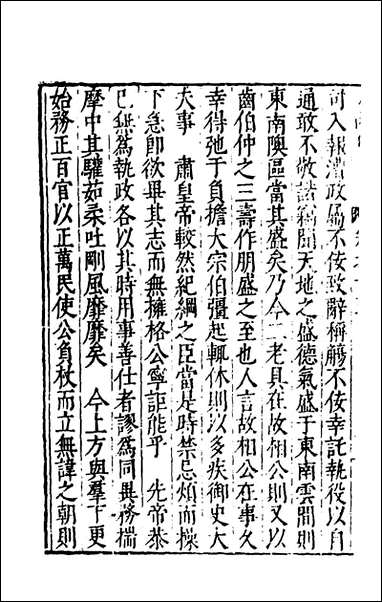 司入報漕政屬不佞致辭稱觴不佞幸託執役以自
通敢不敬諾竊聞天地之盛德氣盛于東南雲間則
東南隩區當其盛矣乃今二老具在故相公則又以
齒伯仲之三壽作朋盛之至也人言故相公在事久
幸得弛于負擔大宗伯彊起輒休則以多疾御史大
夫事 肅皇帝較然紀綱之臣當是時禁忌煩而操
下急卽欲畢其志而無擁格公寧詎能乎 先帝恭
已無為執政各以其時用事善仕者謬為同異務揣
摩中其驩茹柔吐剛風靡靡矣 今上方與羣下更
始務正百官以正萬民使公負杖而立無諱之朝則